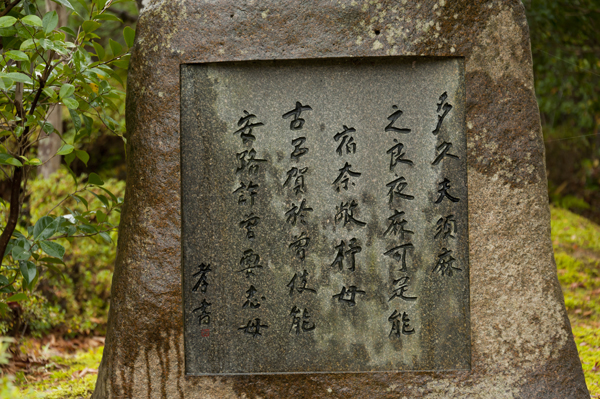 多久夫須麻
之良夜麻可是能
宿奈敝杼母
古呂賀於曽伎能
安路許曽要志母
孝書